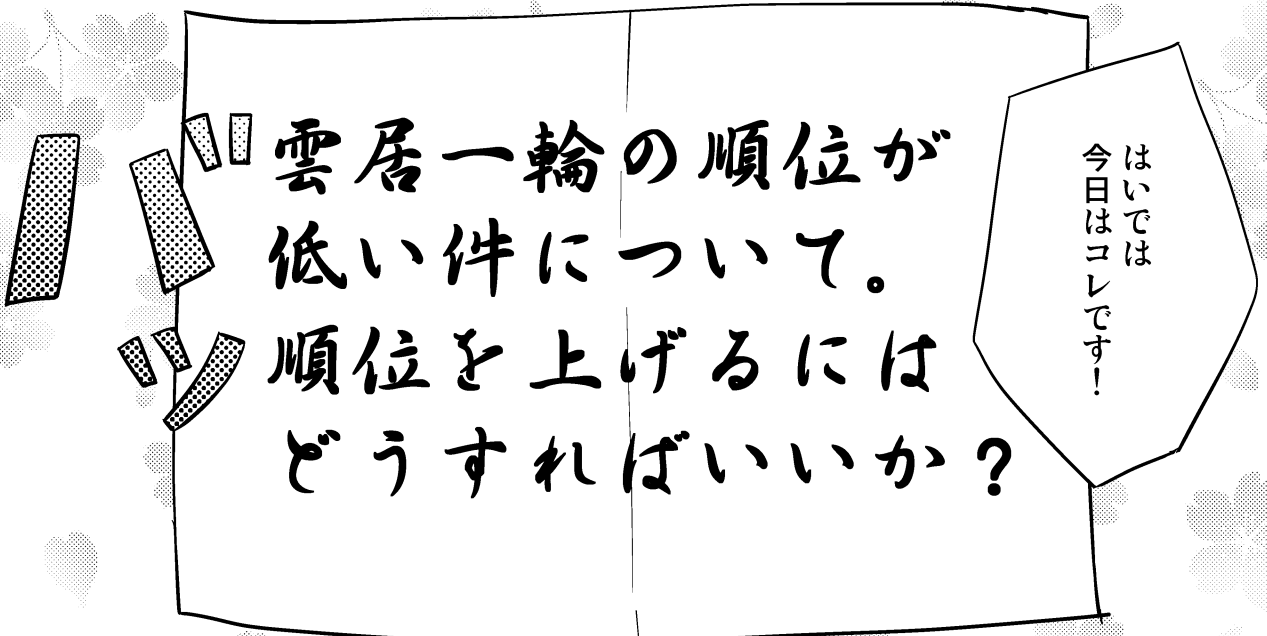 はいでは
今日はコレです！
雲居一輪の順位が
低い件について。
順位を上げるには
どうすればいいか？
バッ